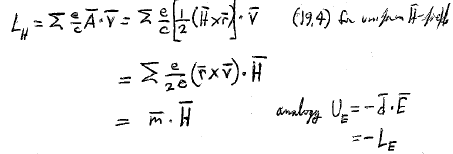 L_H = Σ e/c Ā·v̄ = Σ e/c [1/2 (H̄×r̄)]·v̄ (19,4) for uniform H̄-field
= Σ e/2c (r̄×v̄)·H̄
= m̄·H̄ analogy U_E = -d̄·Ē
= -L_E